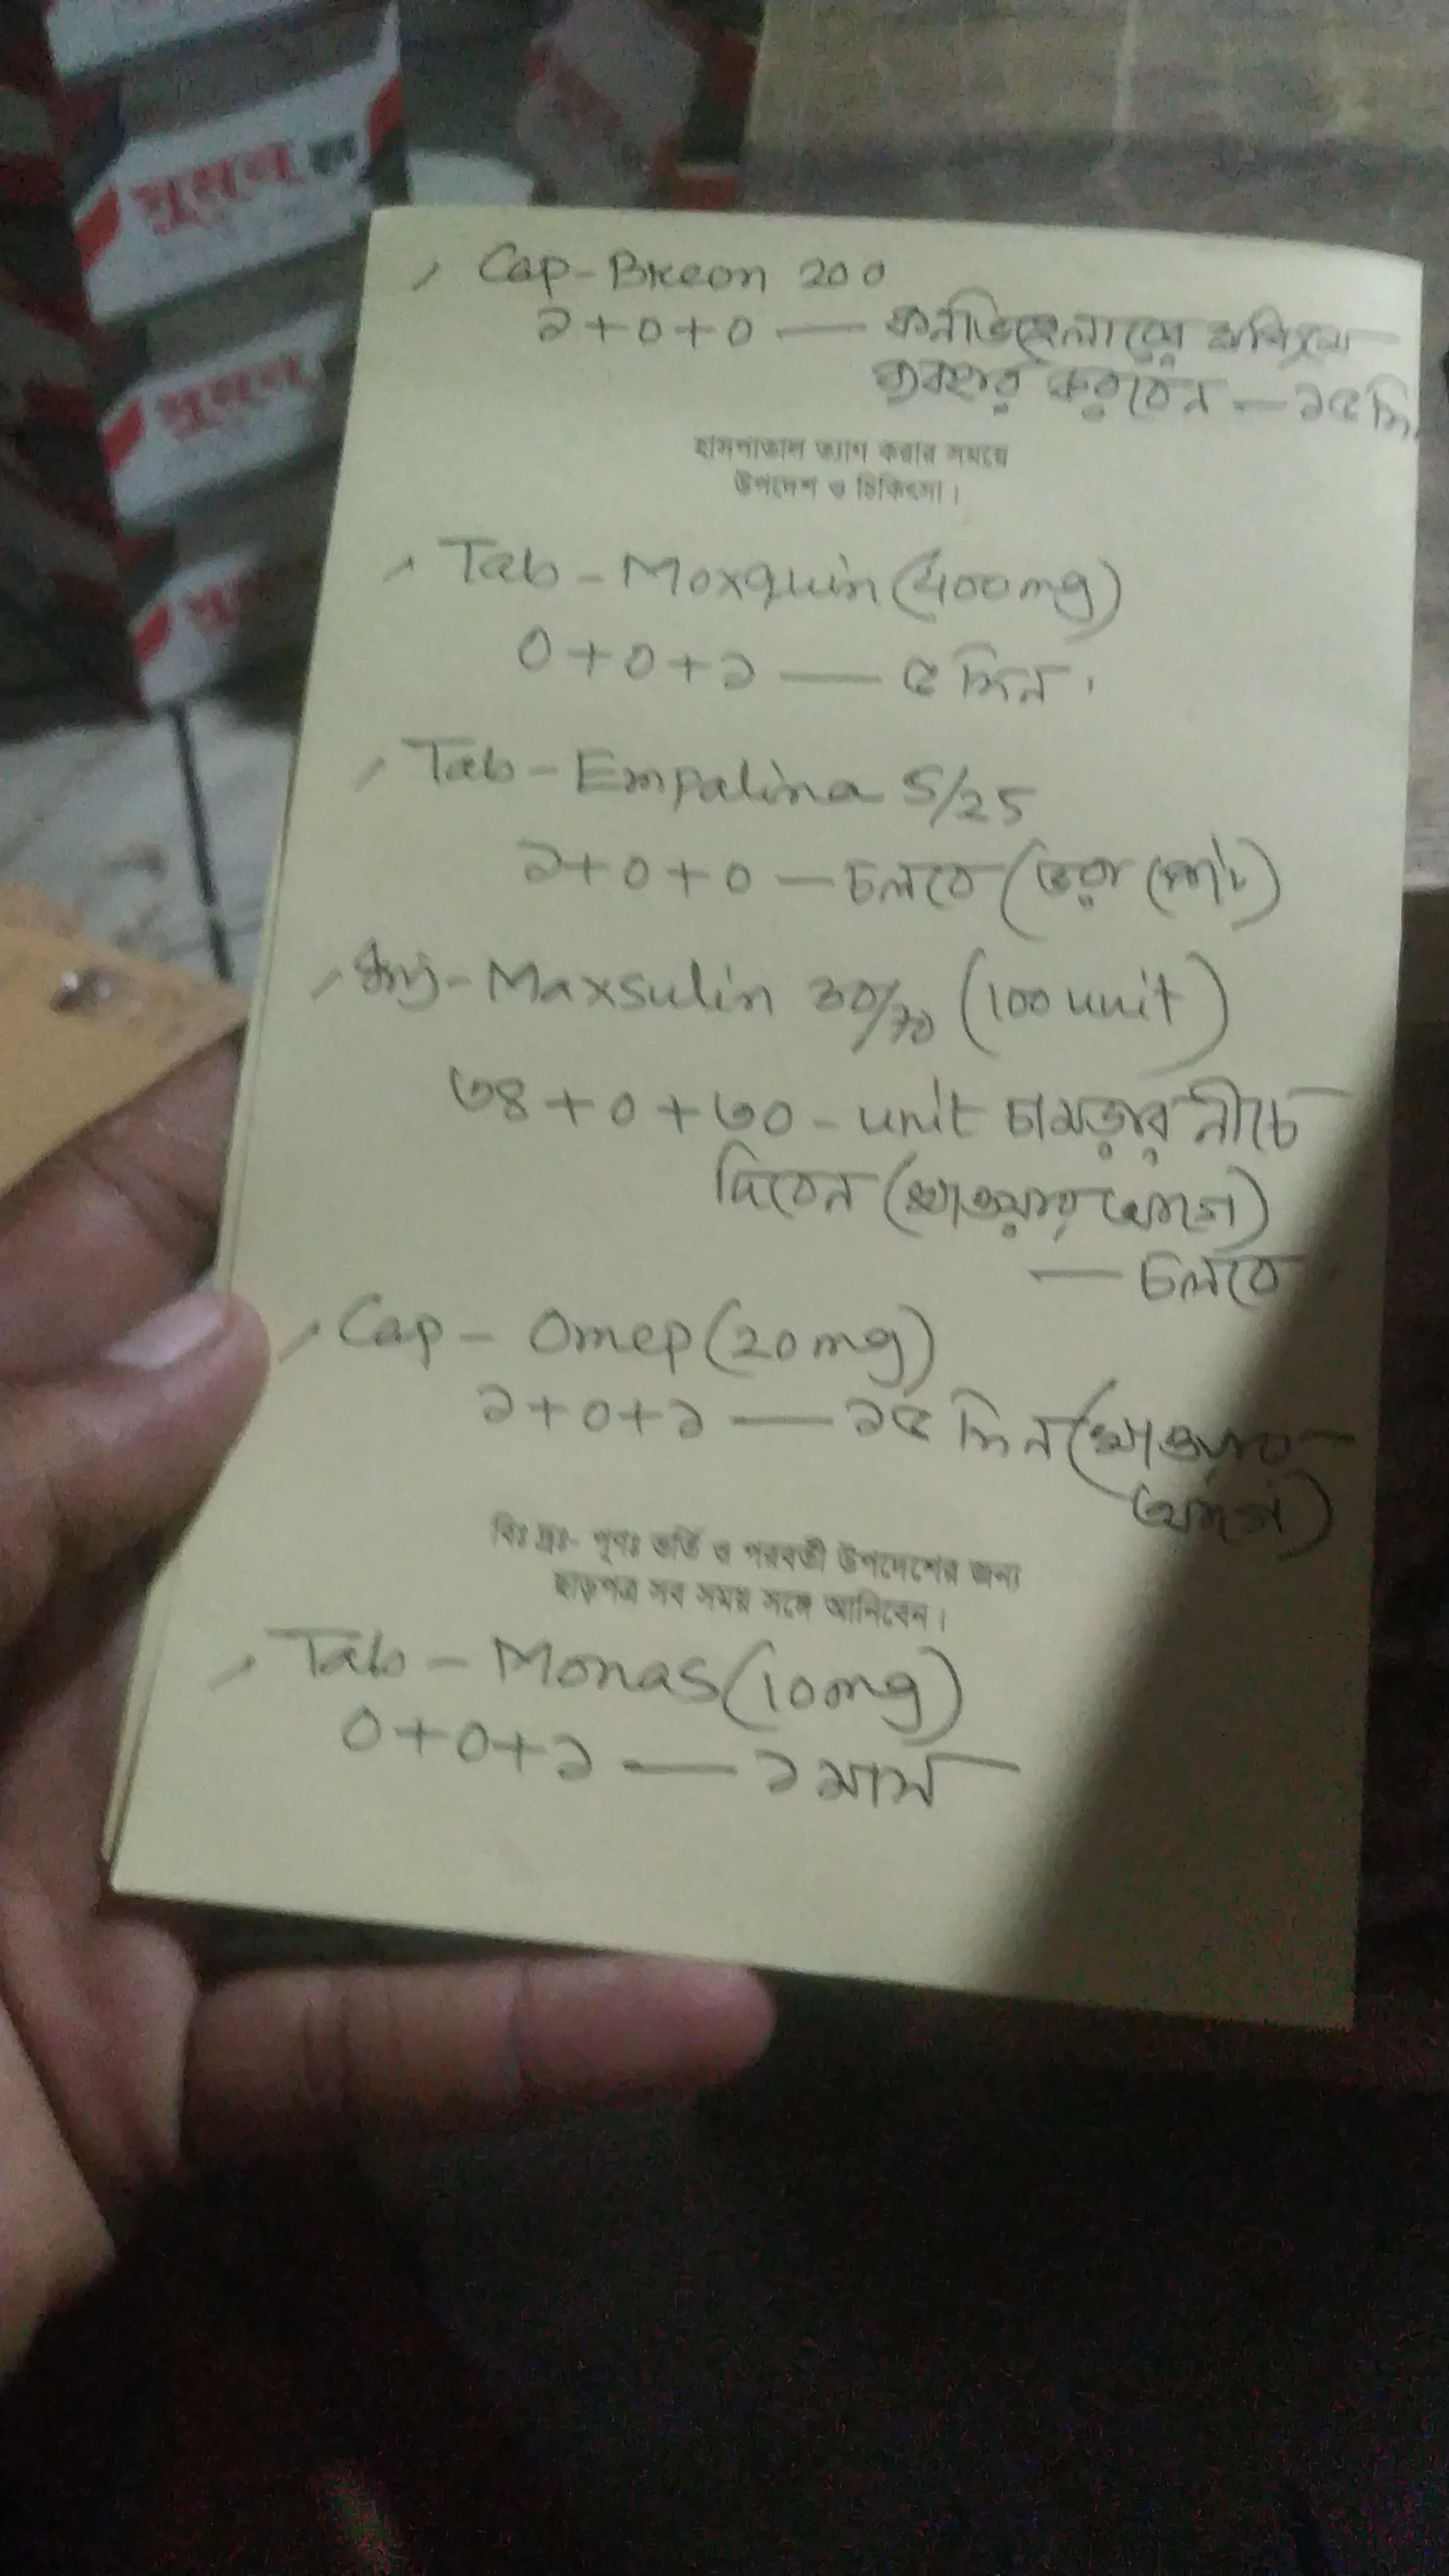 সুমন
সুমন
Cap-Breon 200
১+০+০ — কনভিহেলারের মাধ্যমে
ব্যবহার করবেন — ১৫ দি
হাসপাতাল ত্যাগ করার সময়ে
উপদেশ ও চিকিৎসা।
Tab-Moxquin (400mg)
০+০+১ — ৫ দিন।
Tab-Empalina 5/25
১+০+০ — চলবে (ভরা পেটে)
Inj-Maxsulin 30/70 (100 unit)
৩৪+০+৩০ - unit চামড়ার নীচে
দিবেন (খাওয়ার আগে)
— চলবে
Cap - Omep (20mg)
১+০+১ — ১৫ দিন (খাওয়ার
আগে)
বিঃ দ্রঃ- পূণঃ ভর্তি ও পরবর্তী উপদেশের জন্য
ছাড়পত্র সব সময় সঙ্গে আনিবেন।
Tab - Monas (10mg)
০+০+১ — ১ মাস